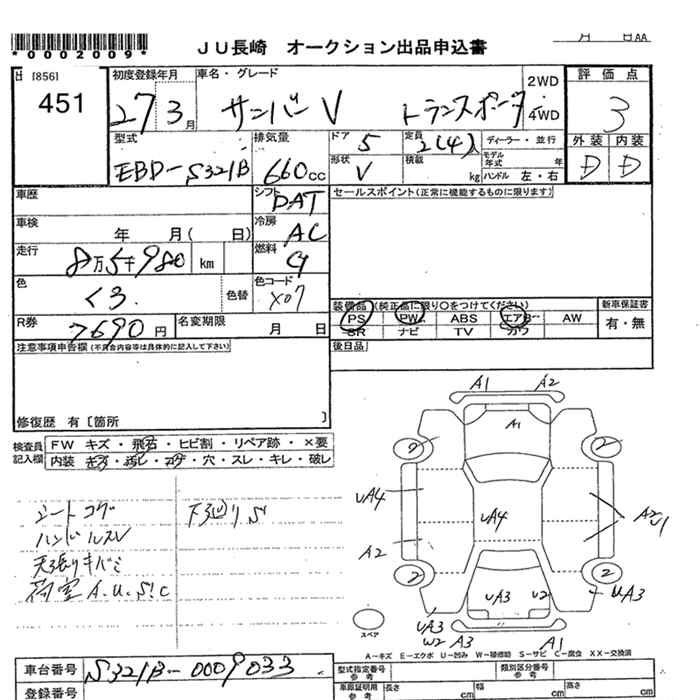 *0002009*
JU長崎 オークション出品申込書
月 日AA
[856]
451
初度登録年月
27 3月
車名・グレード
サンバーV トランスポータ
2WD
・
4WD
評価点
3
型式
EBD-S321B
排気量
660cc
ドア
5
定員
2(4)人
ディーラー・並行
形状
V
積載
kg
モデル年式 年
ハンドル 左・右
外装 内装
D D
車歴
シフト
DAT
セールスポイント(正常に機能するものに限ります)
車検
年 月( 日)
冷房
AC
走行
8万5千980 km
燃料
G
色
クロ
色替
色コード
X07
R券
7690円
名変期限
月 日
装備品(純正品に限り○をつけてください)
PS PW ABS エアB AW
SR ナビ TV カワ
新車保証書
有・無
注意事項申告欄(不具合内容等は具体的に記入して下さい)
後日品
修復歴 有〔箇所 〕
検査員記入欄
FW キズ・飛石・ヒビ割・リペア跡・×要
内装 キズ・汚レ・コゲ・穴・スレ・キレ・破レ
シートコゲ
ハンドルスレ
天張りキバミ
荷室A.U.S!C
下廻りS
A1 A2
A1
2 2
UA4
UA4
A2
2 2
UA3 U2
UA3
UA3
W2 A3
A1
スペア
A-キズ E-エクボ U-凹み W-補修跡 S-サビ C-腐食 XX-交換済
車台番号
S321B-0009033
登録番号
型式指定番号
参考
類別区分番号
参考
車庫証明用
参考
長さ cm
幅 cm
高さ cm